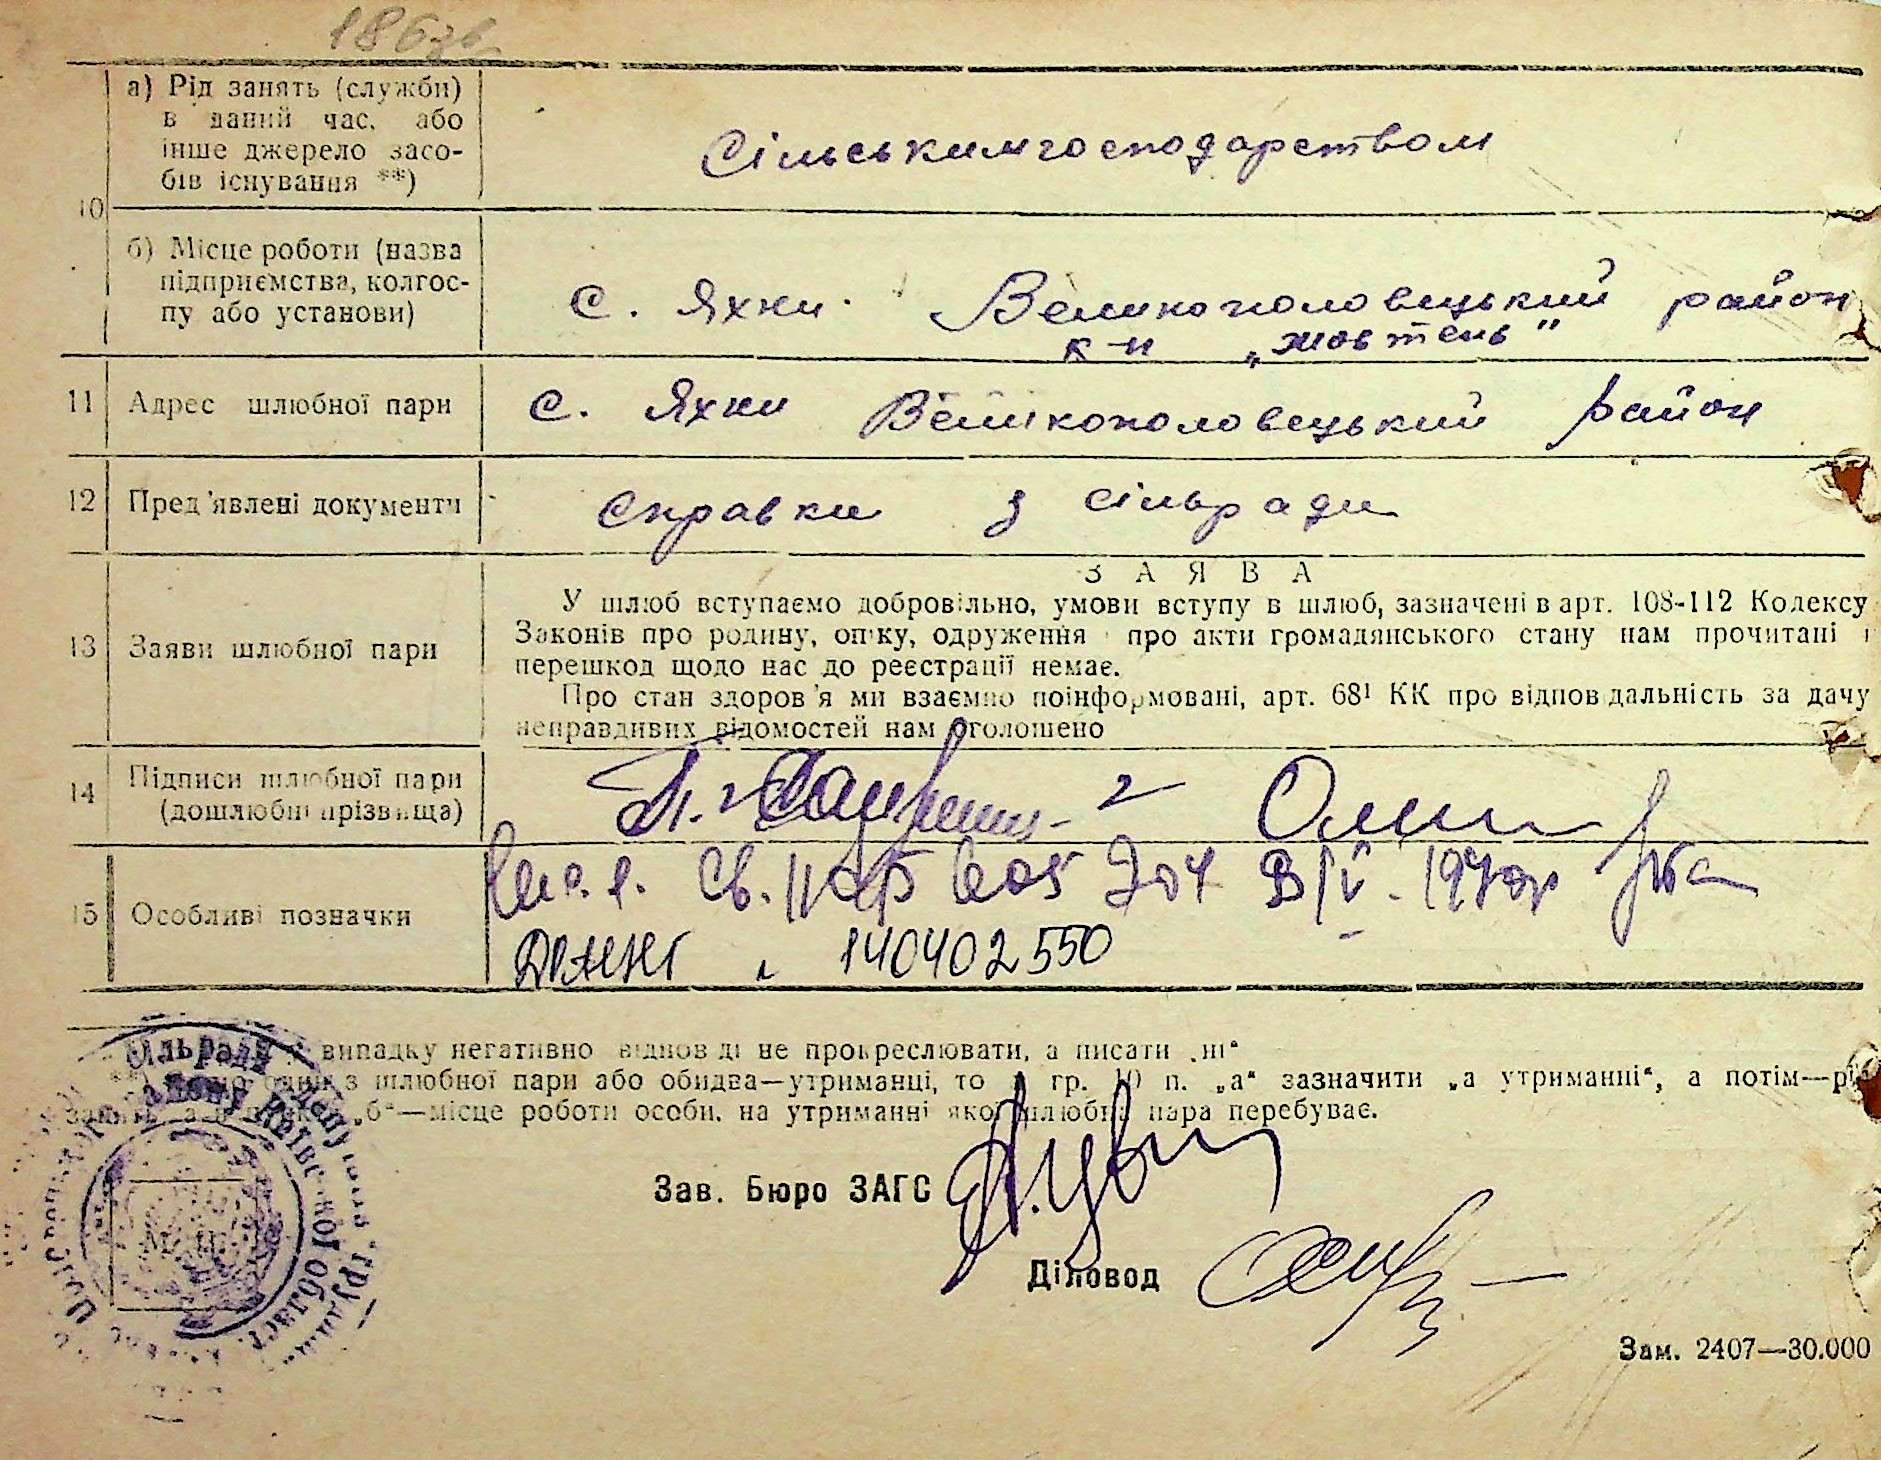 186зв
а) Рід занять (служби)
в даний час, або
інше джерело засо-
бів існування **)
Сільськимгосподарством
10
б) Місце роботи (назва
підприємства, колгос-
пу або установи)
с. Яхни. Великополовецький район
к-п „Жовтень"
11 Адрес шлюбної пари
с. Яхни Великополовецький район
12 Пред'явлені документи
справки з сільради
13 Заяви шлюбної пари
ЗАЯВА
У шлюб вступаємо добровільно, умови вступу в шлюб, зазначені в арт. 108-112 Кодексу
Законів про родину, опіку, одруження і про акти громадянського стану нам прочитані і
перешкод щодо нас до реєстрації немає.
Про стан здоров'я ми взаємно поінформовані, арт. 68¹ КК про відповідальність за дачу
неправдивих відомостей нам оголошено
14 Підписи шлюбної пари
(дошлюбні прізвища)
15 Особливі позначки
140402550
випадку негативно відповіді не прокреслювати, а писати „ні"
з шлюбної пари або обидва—утриманці, то в гр. 10 п. „а" зазначити „а утриманні", а потім—рід
„б"—місце роботи особи, на утриманні якої шлюбна пара перебуває.
Зав. Бюро ЗАГС
Діловод
сільради депутатів труд
району Київської області
М. П.
Зам. 2407—30.000